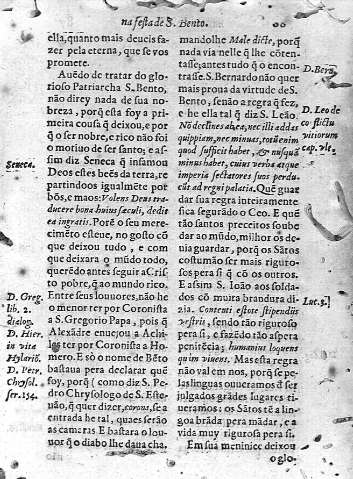 na festa de S. Bento.
ella, quanto mais deueis fa-
zer pela eterna, que se vos
promete.
Auẽdo de tratar do glo-
rioso Patriarcha S. Bento,
não direy nada de sua no-
breza, porq̃ esta foy a pri-
meira cousa q̃ deixou, e por-
q̃ o ser nobre, e rico não foi
o motiuo de ser santo; e as-
sim diz Seneca q̃ infamou
Seneca.
Deos estes beẽs da terra, re
partindoos igualmẽte por
bõs, e maos: Volens Deus tra-
ducere bona huius sæculi, dedit
ea ingratis. Porẽ o seu mere-
cimẽto esteue, no gosto cõ
que deixou tudo, e com
que deixara o mũdo todo,
querẽdo antes seguir a Cris-
to pobre, q̃ ao mundo rico.
D. Greg.
lib. 2.
dialog.
D. Hier.
in vita
Hylariõ.
D. Petr.
Chrysol.
ser. 154.
Entre seus louuores, não he
o menor ter por Coronista
a S. Gregorio Papa, pois q̃
Alexãdre enuejou a Achi-
ter por Coronista a Ho-
mero. E só o nome de Bẽto
bastaua pera declarar quẽ
foy, porq̃ (como diz S. Pe-
dro Chrysologo de S. Este-
uão, q̃ quer dizer, corona, se a
entrada he tal, quaes serão
as camaras E bastara o lou-
uor q̃ o diabo lhe daua cha-
mandolhe Male dicte, porq̃
nada via nelle q̃ lhe cõten-
tasse, antes tudo q̃ o encon-
trasse. S. Bernardo não quer
D. Bern.
mais proua da virtude de S.
Bento, senão a regra q̃ fez,
e he ella tal q̃ diz S. Leão.
D. Leo de
cõstictu
vitiorum
cap. vlt.
Nõ declines ab ea, nec illi addas
quippiam, nec minuas, totũ enim
quod sufficit habet, & nusquã
minus habet, cuius verba atque
imperia sectatores suos perdu-
cũt ad regni palatia. Quẽ guar
dar sua regra inteiramente
fica segurãdo o Ceo. E quẽ
tão santos preceitos soube
dar ao mũdo, milhor os de-
uia guardar, porq̃ os Sãtos
costumão ser mais riguro-
sos pera si q̃ cõ os outros.
E assim S. Ioão aos solda-
dos cõ muita brandura di-
Luc. 3.
zia. Contenti estote stipendiis
vestris, sendo tão riguroso
pera si, e fazẽdo tão aspera
penitẽcia; humanius loquens
quim viuens. Mas esta regra
não val em nos, porq̃ se pe-
las linguas ouueramos d̃ ser
julgados grãdes lugares ti-
ueramos: os Sãtos tẽ a lin-
goa brãda pera mãdar, e a
vida muy rigurosa pera si.
Em sua meninice deixou
o glo-